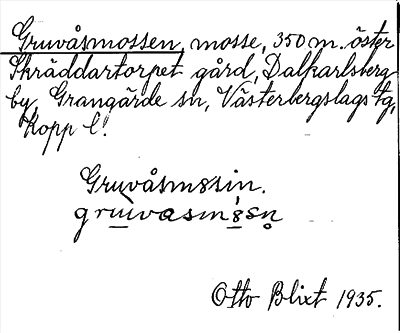 Gruvåsmossen, mosse, 350 m. öster
Skräddartorpet gård, Dalkarlsberg
by, Grangärde sn, Västerbergslags tg,
Kopp l.
Gruvåsm8sin.
gruivasm8sn
Otto Blixt 1935.